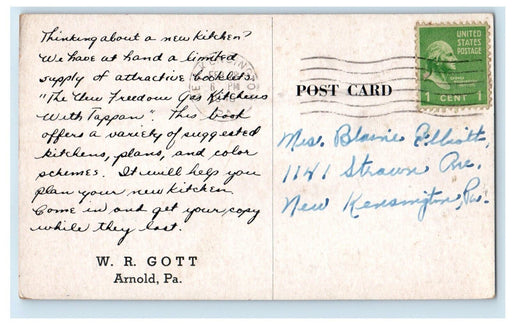 Thinking about a new kitchen?
We have at hand a limited
supply of attractive booklets.
"The New Freedom Gas Kitchens
With Tappan". This book
offers a variety of suggested
kitchens, plans, and color
schemes. It will help you
plan your new kitchen.
Come in and get your copy
while they last.
W. R. GOTT
Arnold, Pa.
POST CARD
UNITED
STATES
POSTAGE
1 CENT 1
Mrs. Blaine Elliott
1141 Strawn Ave.
New Kensington, Pa.